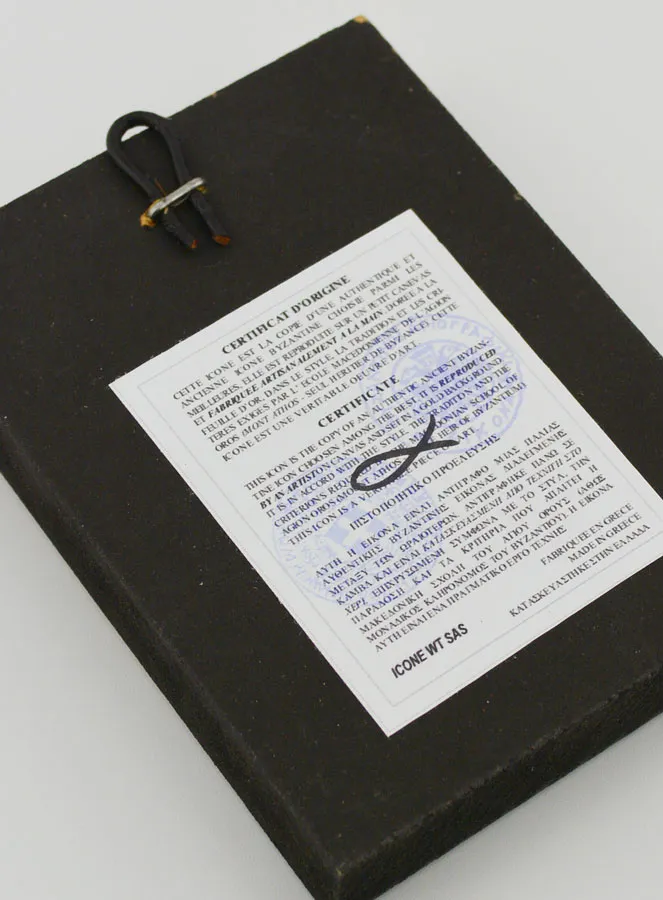 CERTIFICAT D'ORIGINE
CETTE ICONE EST LA COPIE D'UNE AUTHENTIQUE ET
ANCIENNE ICONE BYZANTINE CHOISIE PARMI LES
MEILLEURES, ELLE EST REPRODUITE SUR UN PETIT CANEVAS
ET FABRIQUEE ARTISANALEMENT A LA MAIN, DOREE A LA
FEUILLE D'OR, DANS LE STYLE, LA TRADITION ET LES CRI-
TERES EXIGES PAR L' ECOLE MACEDONIENNE DE L'AGION
OROS (MONT ATHOS - SEUL HERITIER DE BYZANCE). CETTE
ICONE EST UNE VERITABLE OEUVRE D'ART.
CERTIFICATE
THIS ICON IS THE COPY OF AN AUTHENTIC ANCIENT BYZAN-
TINE ICON CHOOSEN AMONG THE BEST. IT IS REPRODUCED
BY AN ARTIST ON CANVAS AND SET IN A GOLD BACKGROUND.
IT IS IN ACCORD WITH THE STYLE, THE TRADITION AND THE
CRITERIONS THE MACEDONIAN SCHOOL OF
AGION OROS (MOUNT ATHOS HEIR OF BYZANTIUM)
THIS ICON IS A PIECE OF ART.
ΠΙΣΤΟΠΟΙΗΤΙΚΟ ΠΡΟΕΛΕΥΣΗΣ
ΑΥΤΗ Η ΕΙΚΟΝΑ ΕΙΝΑΙ ΑΝΤΙΓΡΑΦΟ ΜΙΑΣ ΠΑΛΙΑΣ
ΑΥΘΕΝΤΙΚΗΣ ΒΥΖΑΝΤΙΝΗΣ ΕΙΚΟΝΑΣ ΔΙΑΛΕΓΜΕΝΗΣ
ΜΕΤΑΞΥ ΤΩΝ ΩΡΑΙΟΤΕΡΩΝ. ΑΝΤΙΓΡΑΦΗΚΕ ΠΑΝΩ ΣΕ
ΚΑΜΒΑ ΚΑΙ ΕΙΝΑΙ ΚΑΤΑΣΚΕΥΑΣΜΕΝΗ ΑΠΟ ΤΕΧΝΙΤΗ ΣΤΟ
ΧΕΡΙ, ΕΠΙΧΡΥΣΩΜΕΝΗ ΣΥΜΦΩΝΑ ΜΕ ΤΟ ΣΤΥΛ, ΤΗΝ
ΠΑΡΑΔΟΣΗ ΚΑΙ ΤΑ ΚΡΙΤΗΡΙΑ ΠΟΥ ΑΠΑΙΤΕΙ Η
ΜΑΚΕΔΟΝΙΚΗ ΣΧΟΛΗ ΤΟΥ ΑΓΙΟΥ ΟΡΟΥΣ (ΑΘΩΣ
ΜΟΝΑΔΙΚΟΣ ΚΛΗΡΟΝΟΜΟΣ ΤΟΥ ΒΥΖΑΝΤΙΟΥ). Η ΕΙΚΟΝΑ
ΑΥΤΗ ΕΙΝΑΙ ΕΝΑ ΠΡΑΓΜΑΤΙΚΟ ΕΡΓΟ ΤΕΧΝΗΣ
FABRIQUEE EN GRECE
MADE IN GREECE
ΚΑΤΑΣΚΕΥΑΣΤΗΚΕ ΣΤΗΝ ΕΛΛΑΔΑ
ICONE WT SAS